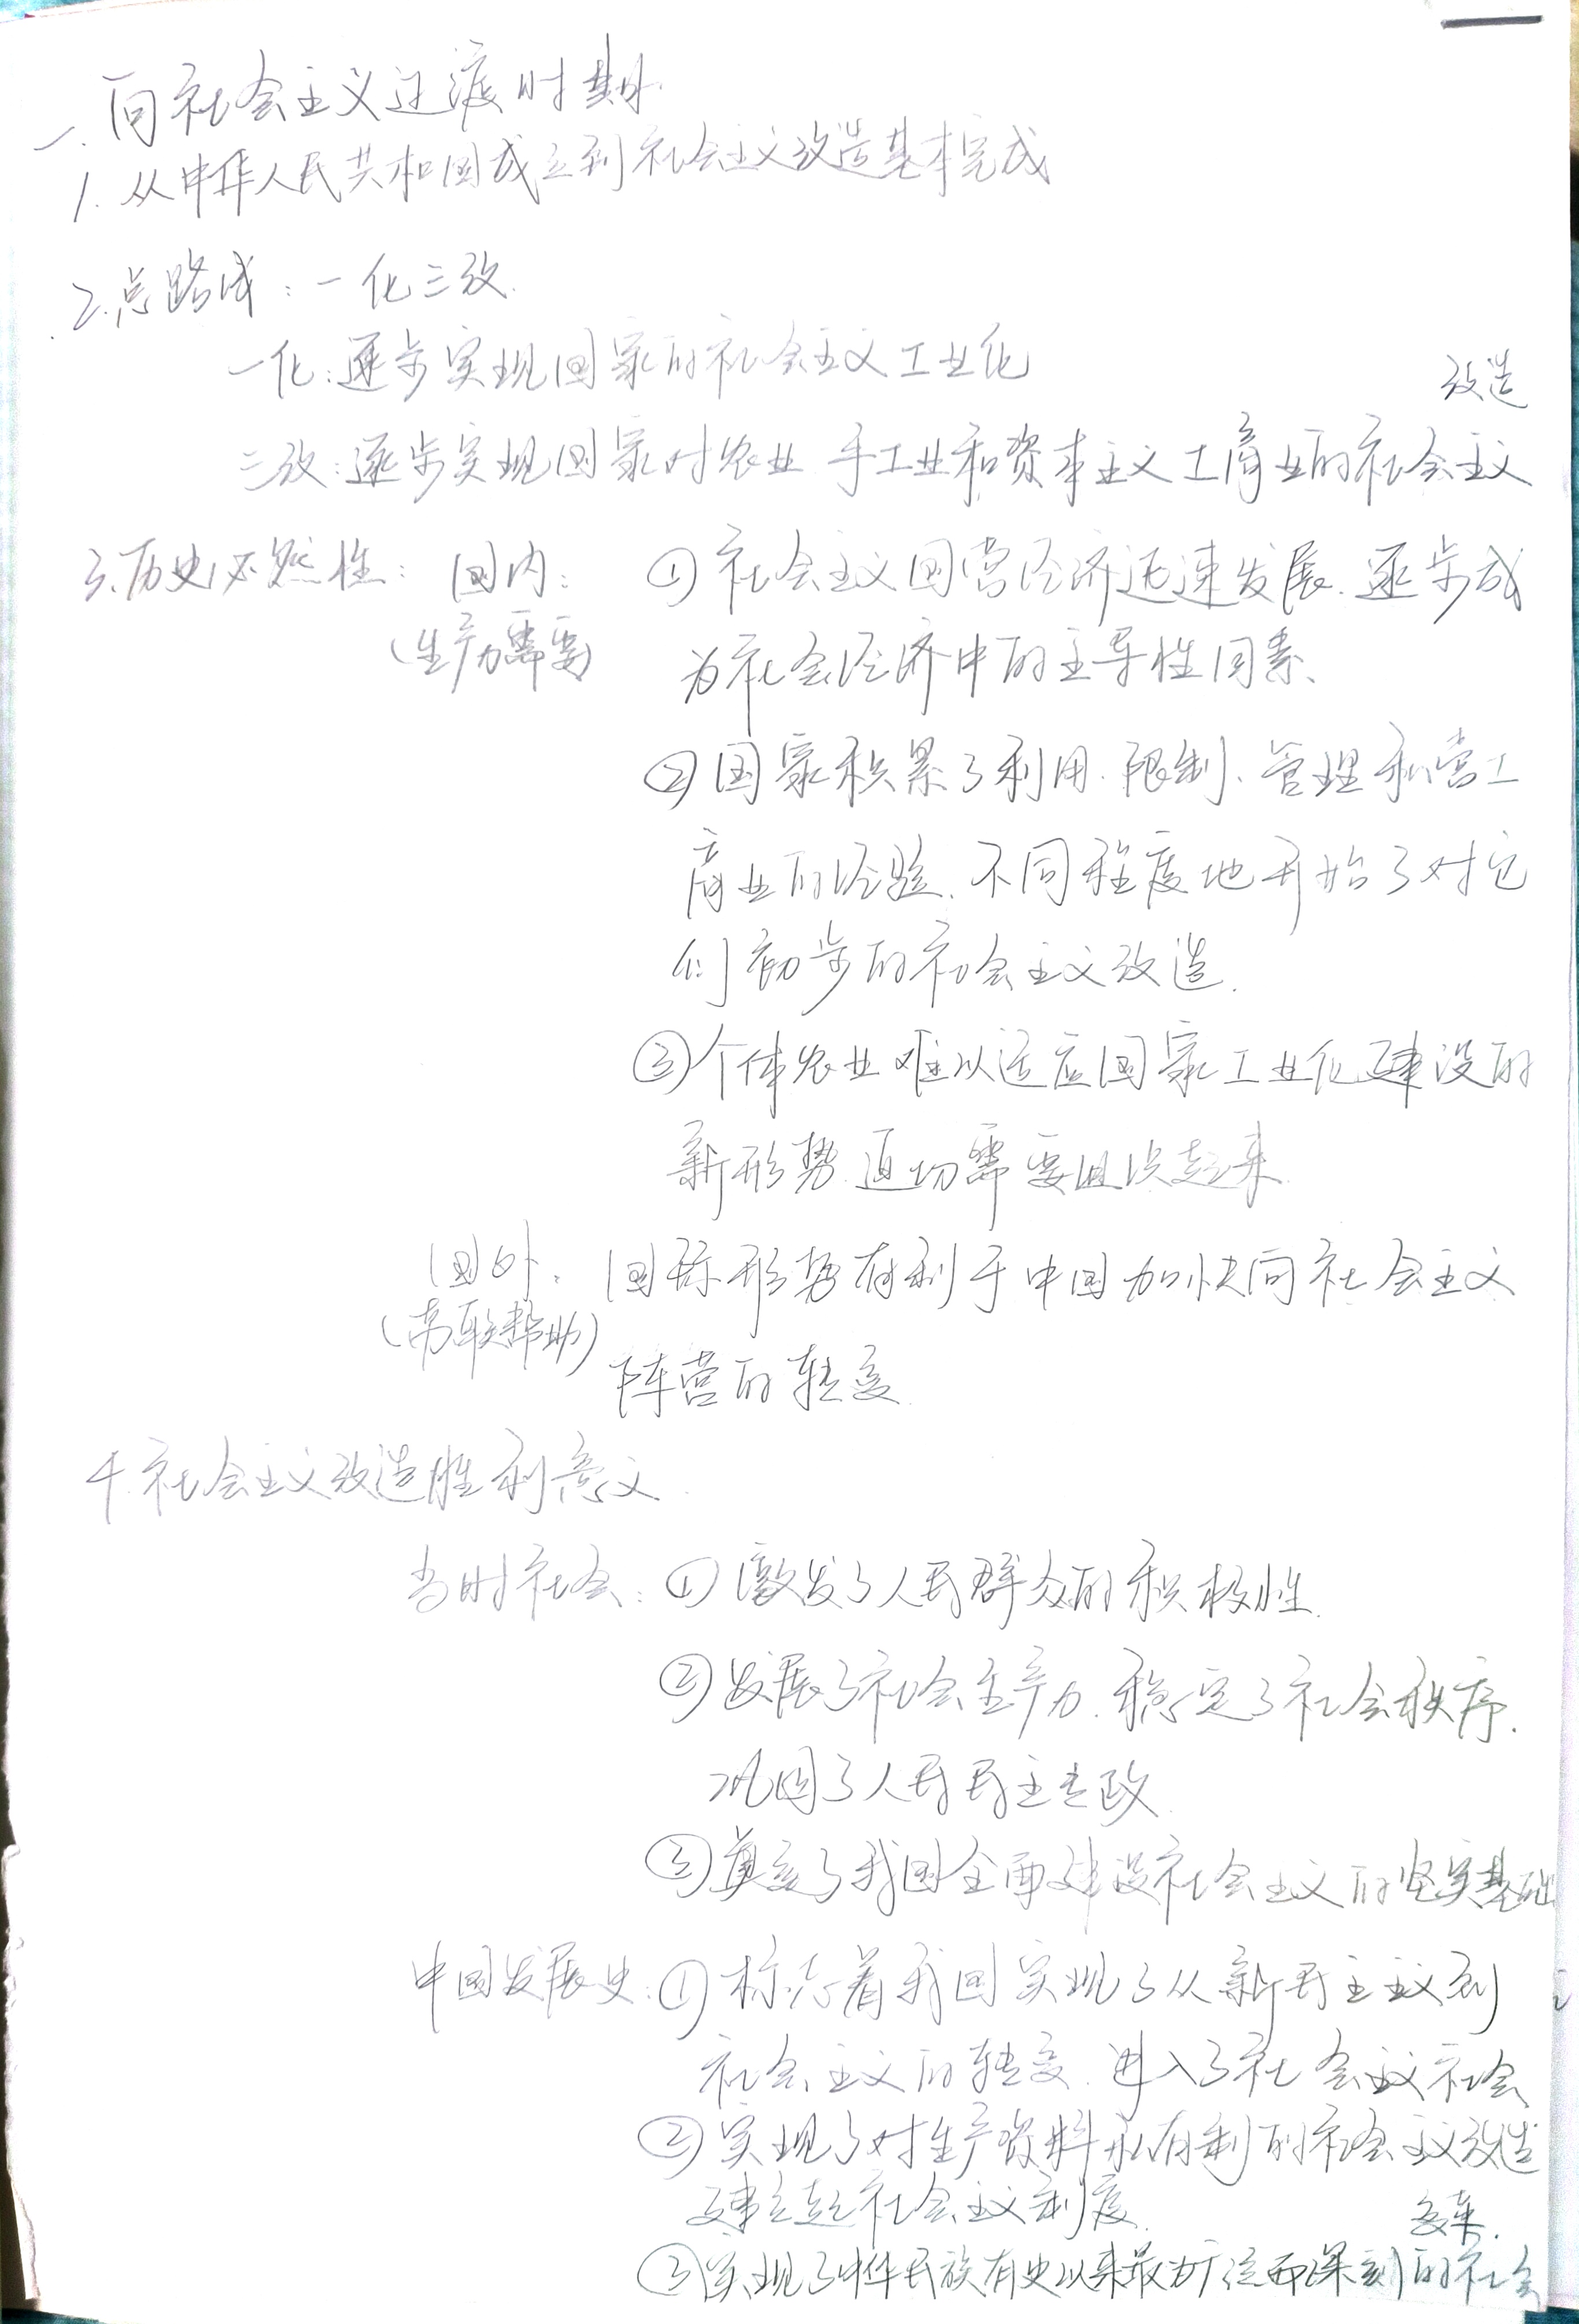 一.向社会主义过渡时期.
1.从中华人民共和国成立到社会主义改造基本完成
2.总路线:一化三改.
一化:逐步实现国家的社会主义工业化
改造
三改:逐步实现国家对农业 手工业和资本主义工商业的社会主义
3.历史必然性: 国内: ①社会主义国营经济迅速发展.逐步成
(生产力需要) 为社会经济中的主导性因素、
②国家积累了利用.限制、管理私营工
商业的经验.不同程度地开始了对它
们初步的社会主义改造.
③个体农业难以适应国家工业化建设的
新形势.迫切需要组织起来
国外: 国际形势有利于中国加快向社会主义
(苏联帮助) 阵营的转变
4.社会主义改造胜利意义
当时社会: ①激发了人民群众的积极性.
②发展了社会生产力.稳定了社会秩序.
巩固了人民民主专政
③奠定了我国全面建设社会主义的坚实基础
中国发展史:①标志着我国实现了从新民主主义到
社会主义的转变.进入了社会主义社会
②实现了对生产资料私有制的社会主义改造
建立起社会主义制度.
变革.
③实现了中华民族有史以来最为广泛而深刻的社会